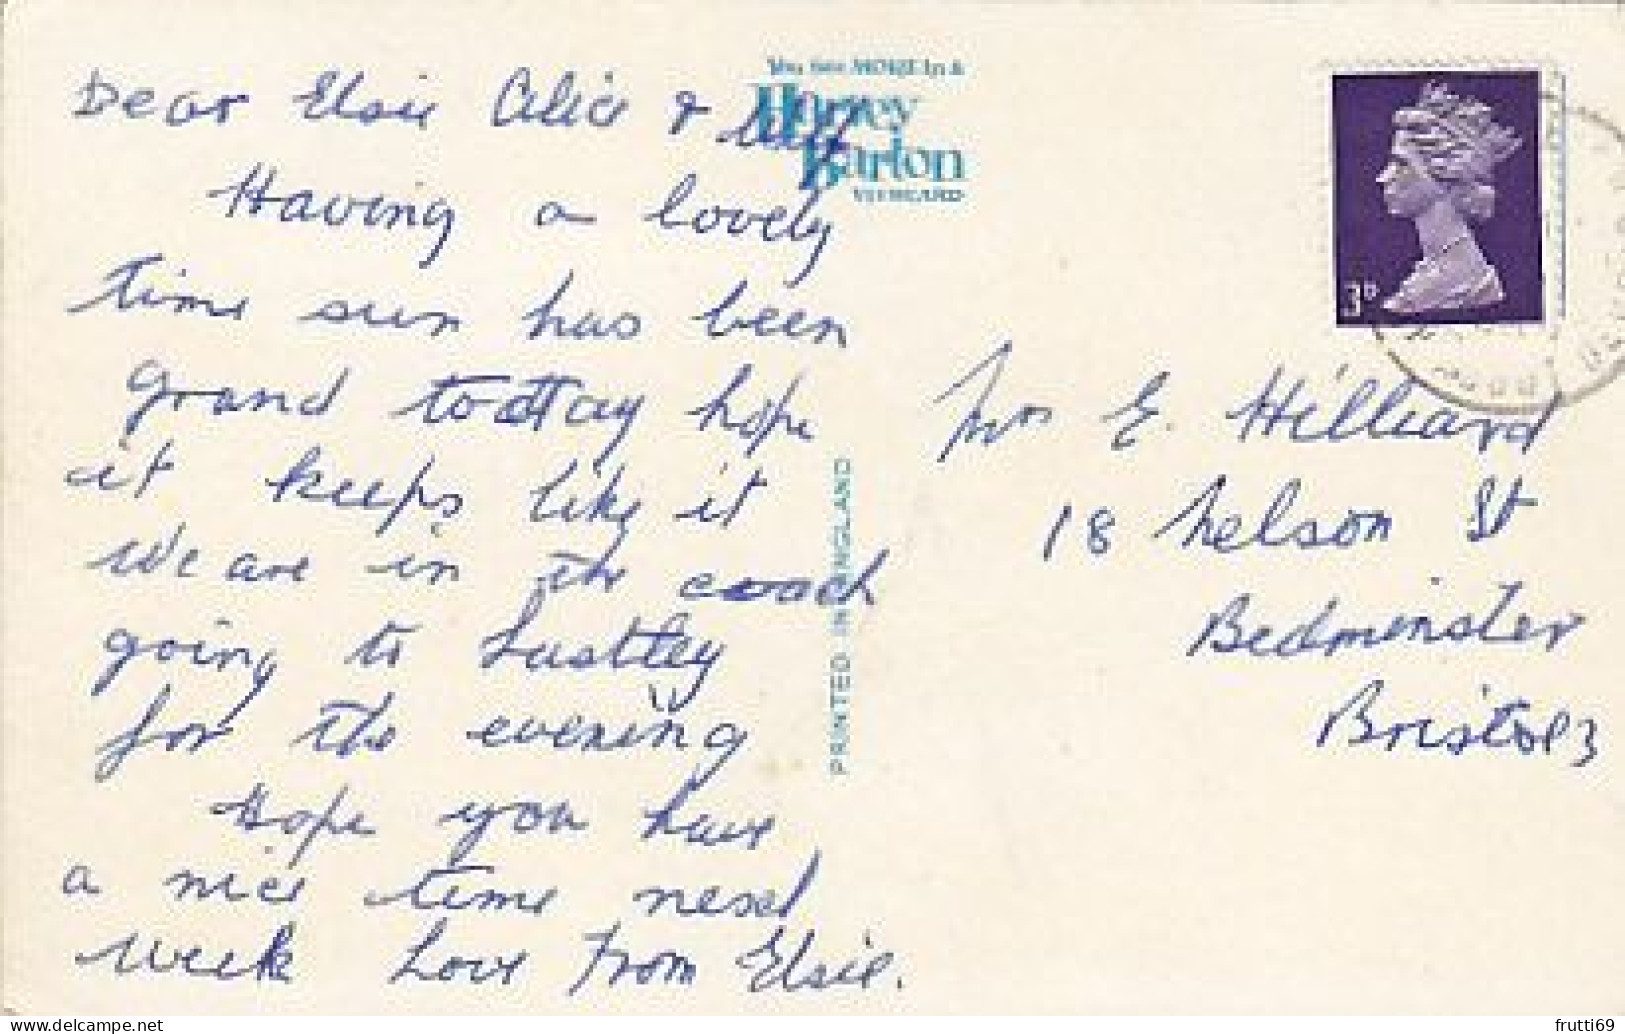 Dear Elsie Alice &
Having a lovely
time sun has been
grand today hope
it keeps like it
We are in the coach
going to
for the evening
Hope you have
a nice time next
week Love From Elsie.
You see MORE in a
Harvey
Barton
VIEWCARD
PRINTED IN ENGLAND
3D
Mrs E. Hilliard
18 Nelson St
Bedminster
Bristol 3
delcampe.net
frutti69